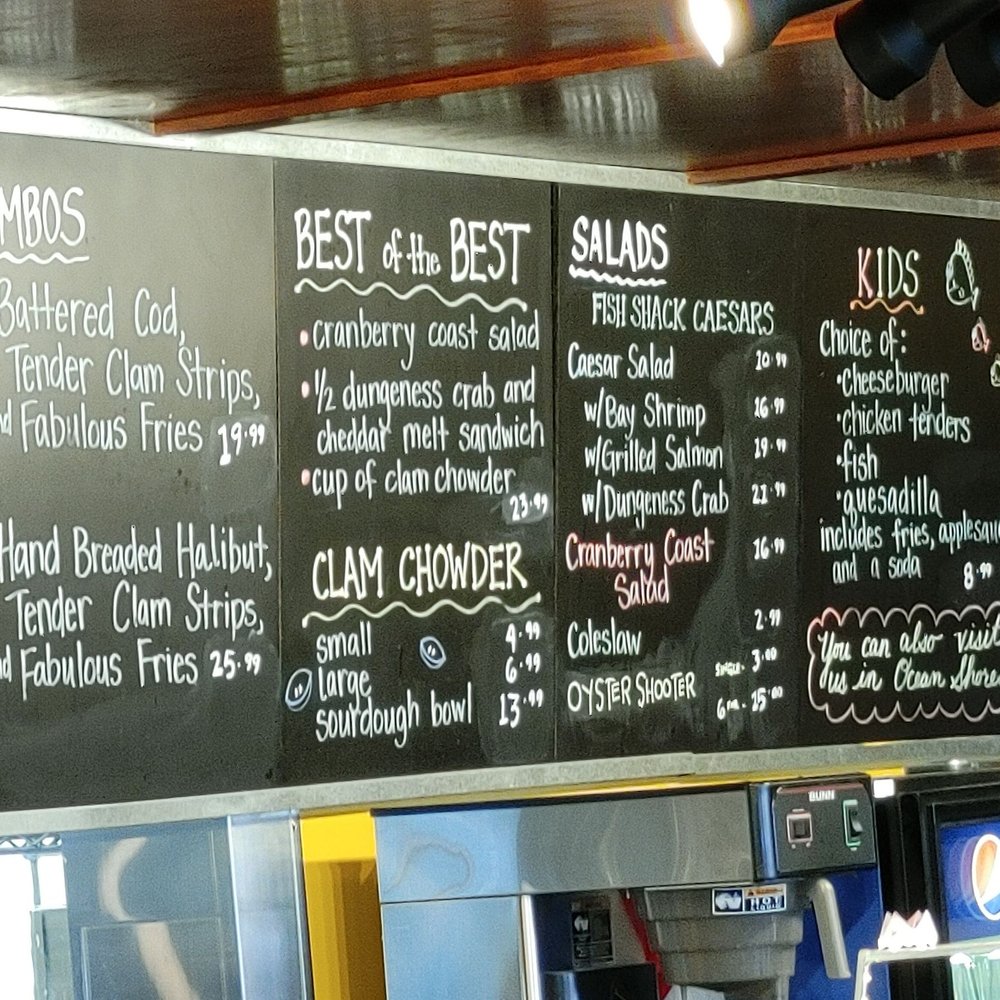 MBOS
Battered Cod,
Tender Clam Strips,
nd Fabulous Fries 19.99
Hand Breaded Halibut,
Tender Clam Strips,
nd Fabulous Fries 25.99
BEST of the BEST
• cranberry coast salad
• 1/2 dungeness crab and
cheddar melt sandwich
• cup of clam chowder
23.99
CLAM CHOWDER
small 4.99
large 6.99
sourdough bowl 13.99
SALADS
FISH SHACK CAESARS
Caesar Salad
w/Bay Shrimp 16.99
w/Grilled Salmon 19.99
w/Dungeness Crab
Cranberry Coast 16.99
Salad
Coleslaw 2.99
OYSTER SHOOTER SINGLE- 3.00
15.00
KIDS
Choice of:
•cheeseburger
•chicken tenders
•fish
•quesadilla
includes fries, applesau
and a soda 8.99
You can also visit
us in Ocean Shore
BUNN
HOT
LIQUID